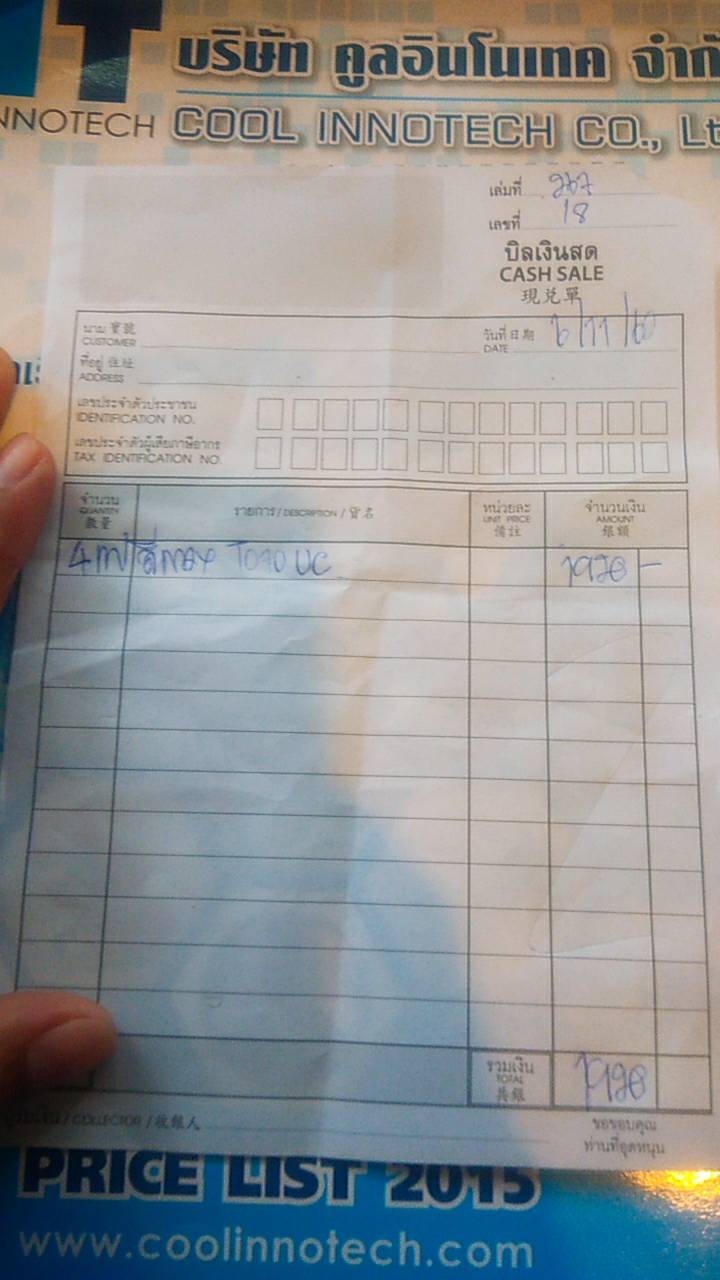 บริษัท คูลอินโนเทค จำกั
NNOTECH COOL INNOTECH CO., Lt
เล่มที่ 267
เลขที่ 18
บิลเงินสด
CASH SALE
現兌單
นาม 寶號
CUSTOMER
วันที่ 日期 6/11/60
DATE
ที่อยู่ 住址
ADDRESS
เลขประจำตัวประชาชน
IDENTIFICATION NO.
เลขประจำตัวผู้เสียภาษีอากร
TAX IDENTIFICATION NO.
จำนวน
QUANTITY
數量
รายการ / DESCRIPTION / 貨名
หน่วยละ
UNIT PRICE
備註
จำนวนเงิน
AMOUNT
銀額
1920 -
รวมเงิน
TOTAL
共銀
1920
ผู้รับเงิน / COLLECTOR / 收銀人
ขอขอบคุณ
ท่านที่อุดหนุน
PRICE LIST 2015
www.coolinnotech.com